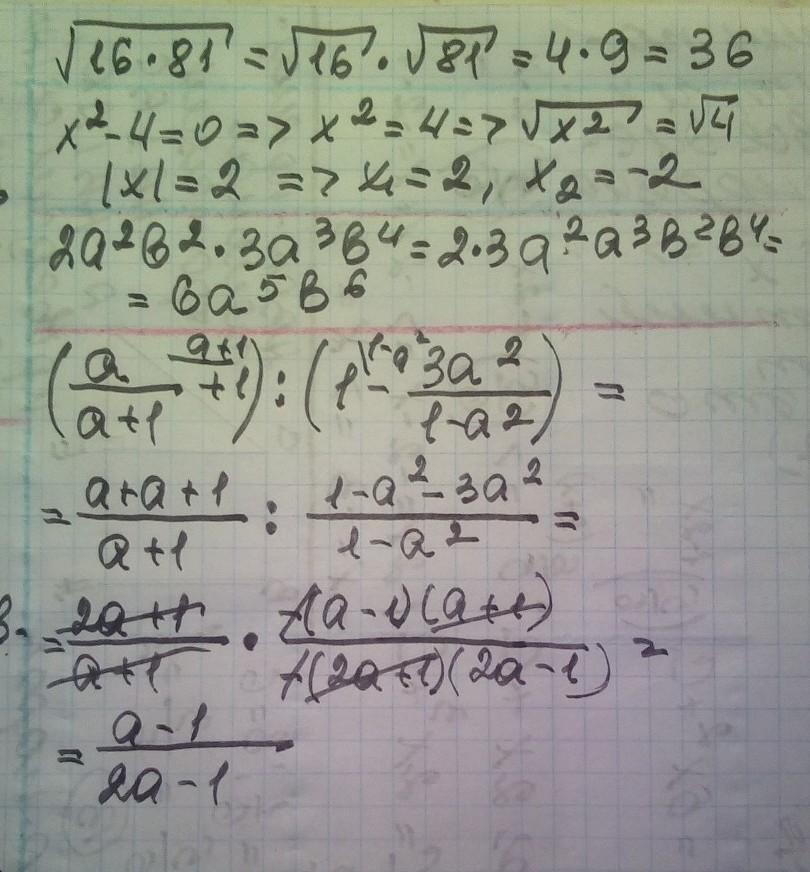 √16·81 = √16 · √81 = 4·9 = 36
x²-4=0 => x²=4 => √x2 = √4
|x|=2 => x₁=2, x₂=-2
2a²в²·3a³в⁴=2·3a²a³в²в⁴=
= 6a⁵в⁶
(a/(a+1) + 1\a+1) : (1\1-a² - 3a²/(1-a²)) =
= (a+a+1)/(a+1) : (1-a²-3a²)/(1-a²) =
= (2a+1)/(a+1) · -(a-1)(a+1)/-(2a+1)(2a-1) =
= (a-1)/(2a-1)